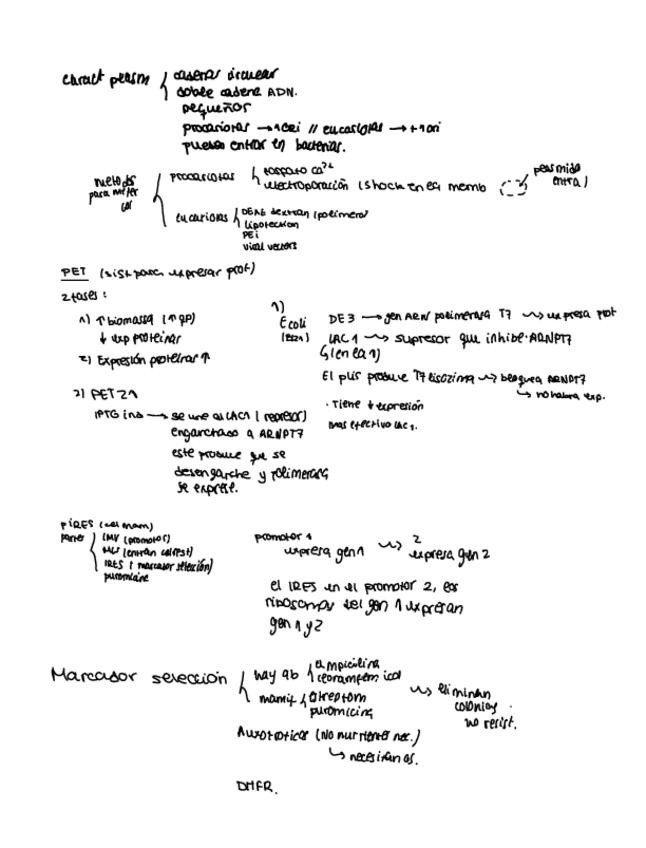 caract plasm { cadena circular
doble cadena ADN.
pequeños
procariotas → 1 ori // eucariotas → +1 ori
pueden entrar en bacterias.
metodos para meter { procariotas { fosfato Ca²⁺
electroporación (shock en la memb plasmido entra)
eucariotas { DEAE dextran (polimero)
lipofection
PEI
viral vectors
PET (sist para expresar prot)
2 fases:
1) ↑ biomassa (↑ )
↓ exp proteinas
2) Expresión proteinas ↑
1)
Ecoli DE3 → gen ARN polimerasa T7 ⇝ expresa prot
LAC1 ⇝ supresor que inhibe ARNPT7
El plis produce T7 lisozima ⇝ bloquea ARNPT7
↳ no habra exp.
· Tiene ↓ expresión
mas efectivo LAC1.
2) PET21
IPTG ind → se une al LAC1 (represor)
engarchado a ARNPT7
este produce que se
desengarche y polimerasa
se exprese.
PIRES (cel mam)
partes { CMV (promotor)
MCS (entran)
IRES (marcador selección)
puromicine
promotor 1 ⇝ 2
expresa gen 1 expresa gen 2
el IRES en el promotor 2, los
ribosomas del gen 1 expresan
gen 1 y 2
Marcador selección { hay ab { ampicilina
cloramfenicol
mamif { streptom
puromicina
⇝ eliminan
colonias
no resist.
Auxotroficos (No nutrientes nec.)
↳ necesitan os.
DHFR.